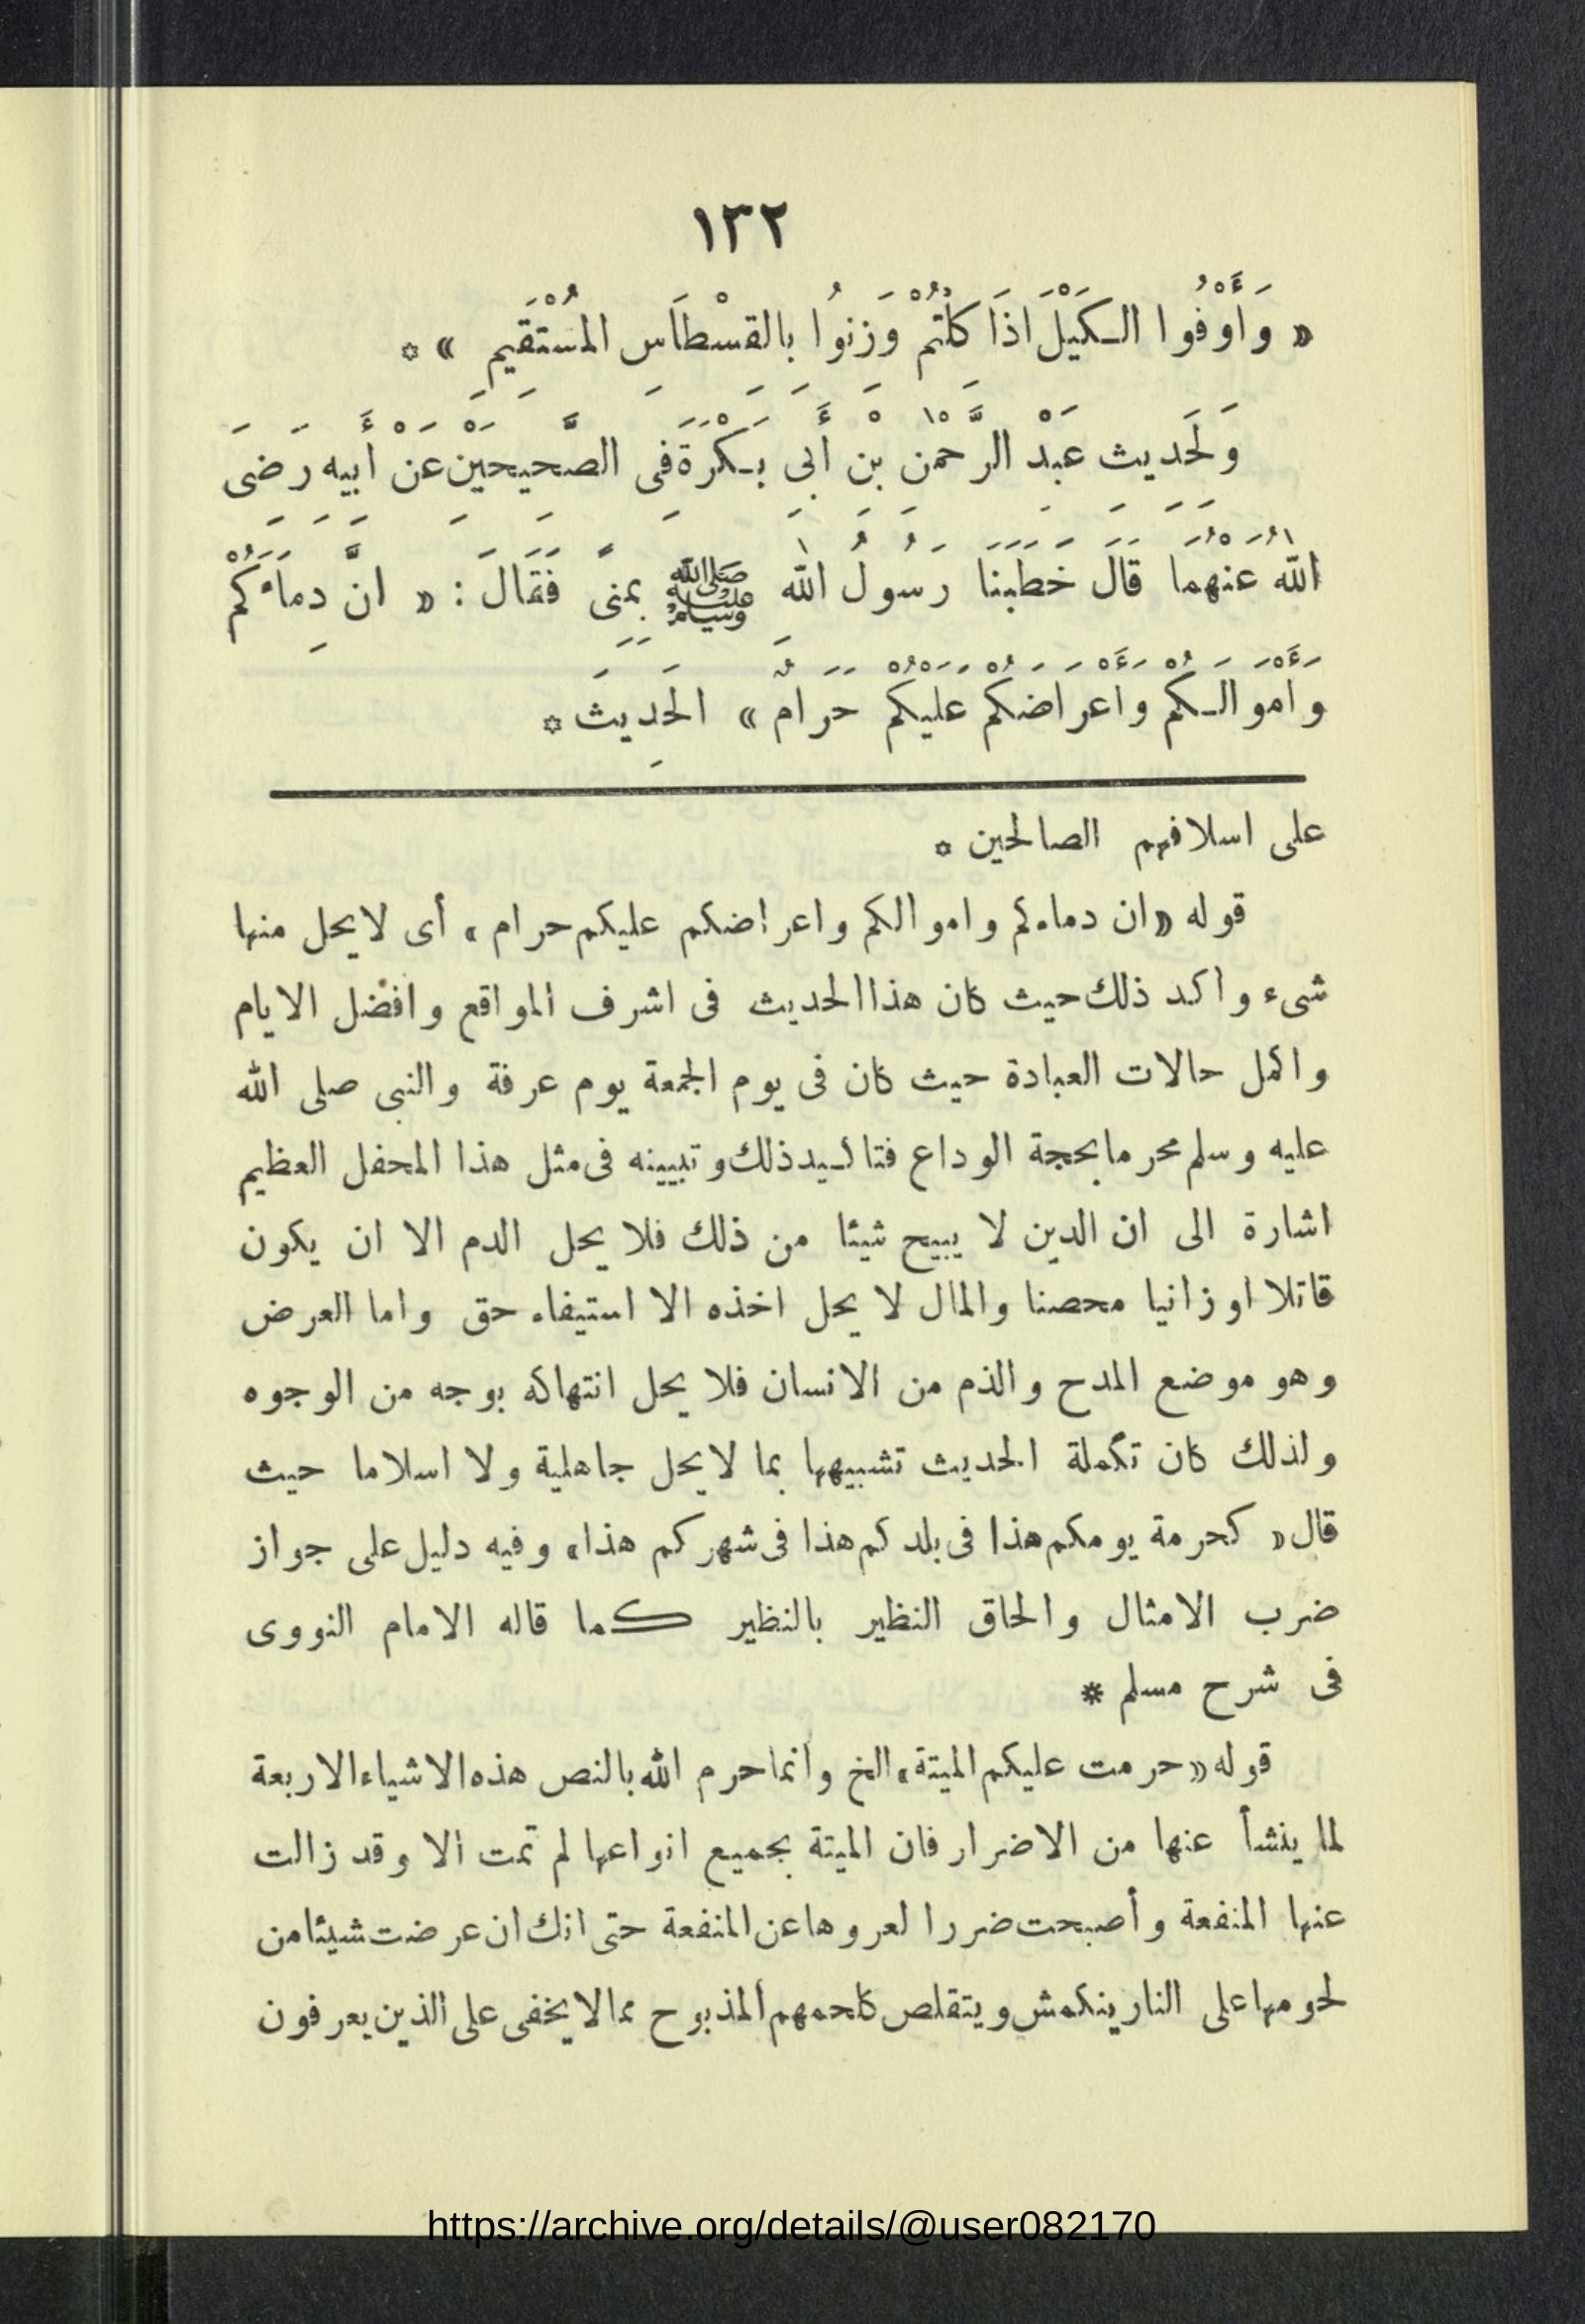 ١٣٢
« وَأَوْفُوا الـكَيْلَ اذَا كِلْتُمْ وَزِنُوا بِالقِسْطَاسِ المُسْتَقِيمِ » *
وَلِحَدِيثِ عَبْدِ الرَّحْمٰنِ بْنِ أَبِي بَـكْرَةَ فِى الصَّحِيحَيْنِ عَنْ أَبِيهِ رَضِىَ
اللهُ عَنْهُمَا قَالَ خَطَبَنَا رَسُولُ اللهِ ﷺ بِمِنًى فَقَالَ : « انَّ دِمَاءَكُمْ
وَأَمْوَالَـكُمْ وَأَعْرَاضَكُمْ عَلَيْكُمْ حَرَامٌ » الحَدِيثَ *
على اسلافهم الصالحين *
قوله «ان دماءكم واموالكم واعراضكم عليكم حرام» أى لا يحل منها
شىء واكد ذلك حيث كان هذا الحديث فى اشرف المواقع وافضل الايام
واكمل حالات العبادة حيث كان فى يوم الجمعة يوم عرفة والنبى صلى الله
عليه وسلم محرما بحجة الوداع فتاكيد ذلك وتبيينه فى مثل هذا المحفل العظيم
اشارة الى ان الدين لا يبيح شيئا من ذلك فلا يحل الدم الا ان يكون
قاتلا او زانيا محصنا والمال لا يحل اخذه الا استيفاء حق واما العرض
وهو موضع المدح والذم من الانسان فلا يحل انتهاكه بوجه من الوجوه
ولذلك كان تكملة الحديث تشبيهها بما لا يحل جاهلية ولا اسلاما حيث
قال « كحرمة يومكم هذا فى بلدكم هذا فى شهركم هذا» وفيه دليل على جواز
ضرب الامثال والحاق النظير بالنظير كما قاله الامام النووى
فى شرح مسلم *
قوله «حرمت عليكم الميتة» الخ وانما حرم الله بالنص هذه الاشياء الاربعة
لما ينشأ عنها من الاضرار فان الميتة بجميع انواعها لم تمت الا وقد زالت
عنها المنفعة وأصبحت ضررا لعروها عن المنفعة حتى انك ان عرضت شيئا من
لحومها على النار ينكمش ويتقلص كلحمهم المذبوح مما لا يخفى على الذين يعرفون
https://archive.org/details/@user082170